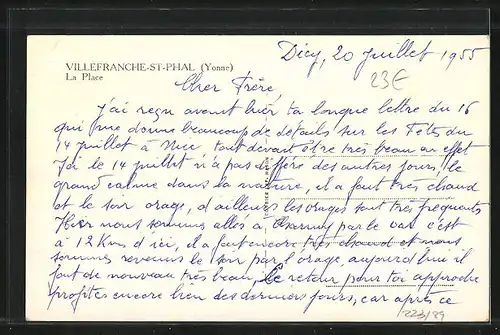 VILLEFRANCHE-ST-PHAL (Yonne)
La Place
Dicy, 20 Juillet 1955
23€
Cher Frère,
J'ai reçu avant hier ta longue lettre du 16
qui me donne beaucoup de détails sur les Fêtes du
14 juillet à Nice, tout devait être très beau en effet
Ici le 14 juillet n'a pas différé des autres jours, le
grand calme dans la nature, il a fait très chaud
et le soir orage, d'ailleurs les orages sont très fréquents
Hier nous sommes allés à Charny par le car c'est
à 12 Km d'ici, il a fait encore très chaud et nous
sommes revenus le soir par l'orage, aujourd'hui il
fait de nouveau très beau, le retour pour toi approche
profites encore bien des derniers jours, car après ce
223/89